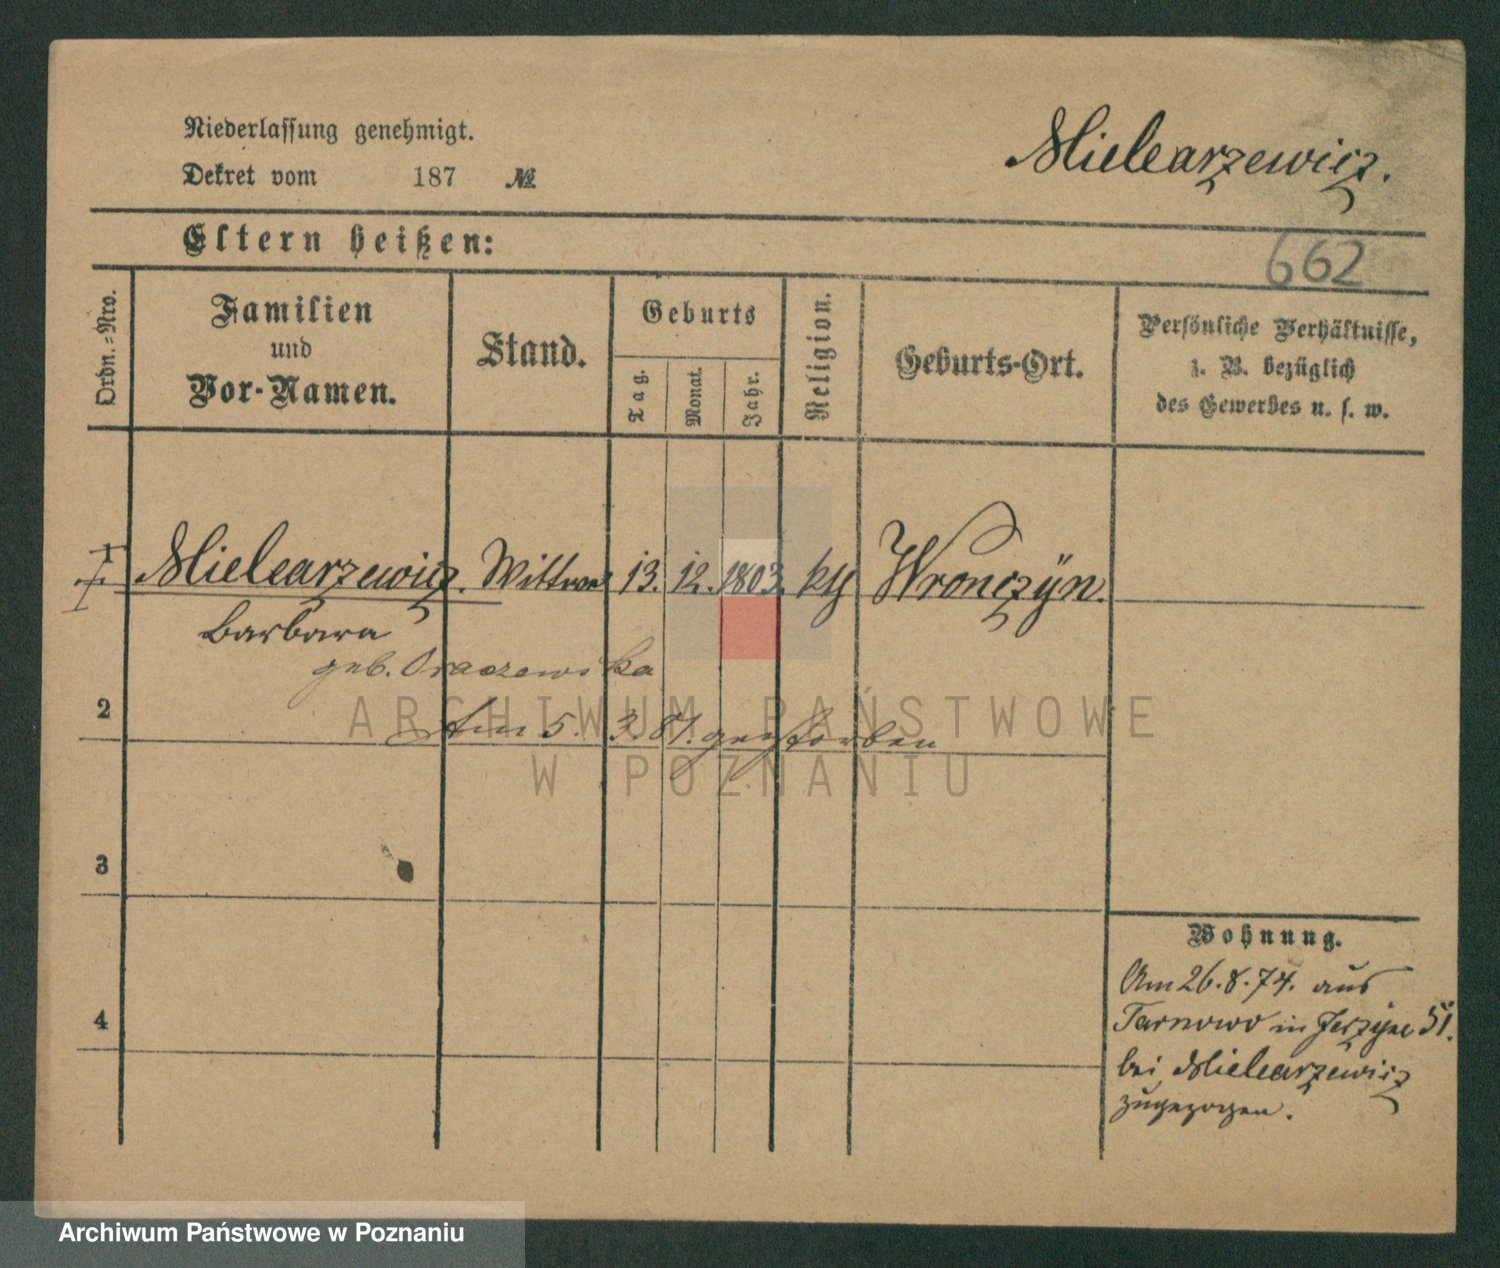 Niederlassung genehmigt.
Dekret vom 187 No.
Mielcarzewicz.
Eltern heißen:
662
Ordn.-Nro.
Familien
und
Vor-Namen.
Stand.
Geburts
Tag.
Monat.
Jahr.
Religion.
Geburts-Ort.
Persönliche Verhältnisse,
z. B. bezüglich
des Gewerbes u. s. w.
1 Mielcarzewicz. Wittwe 13. 12. 1803. kth Wronczyn.
Barbara
geb.
2
Am 5. 3. 81. gestorben
ARCHIWUM PAŃSTWOWE
W POZNANIU
3
4
Wohnung.
Am 26.8.74. aus
Tarnowo in 51.
bei Mielcarzewicz
zugezogen.
Archiwum Państwowe w Poznaniu